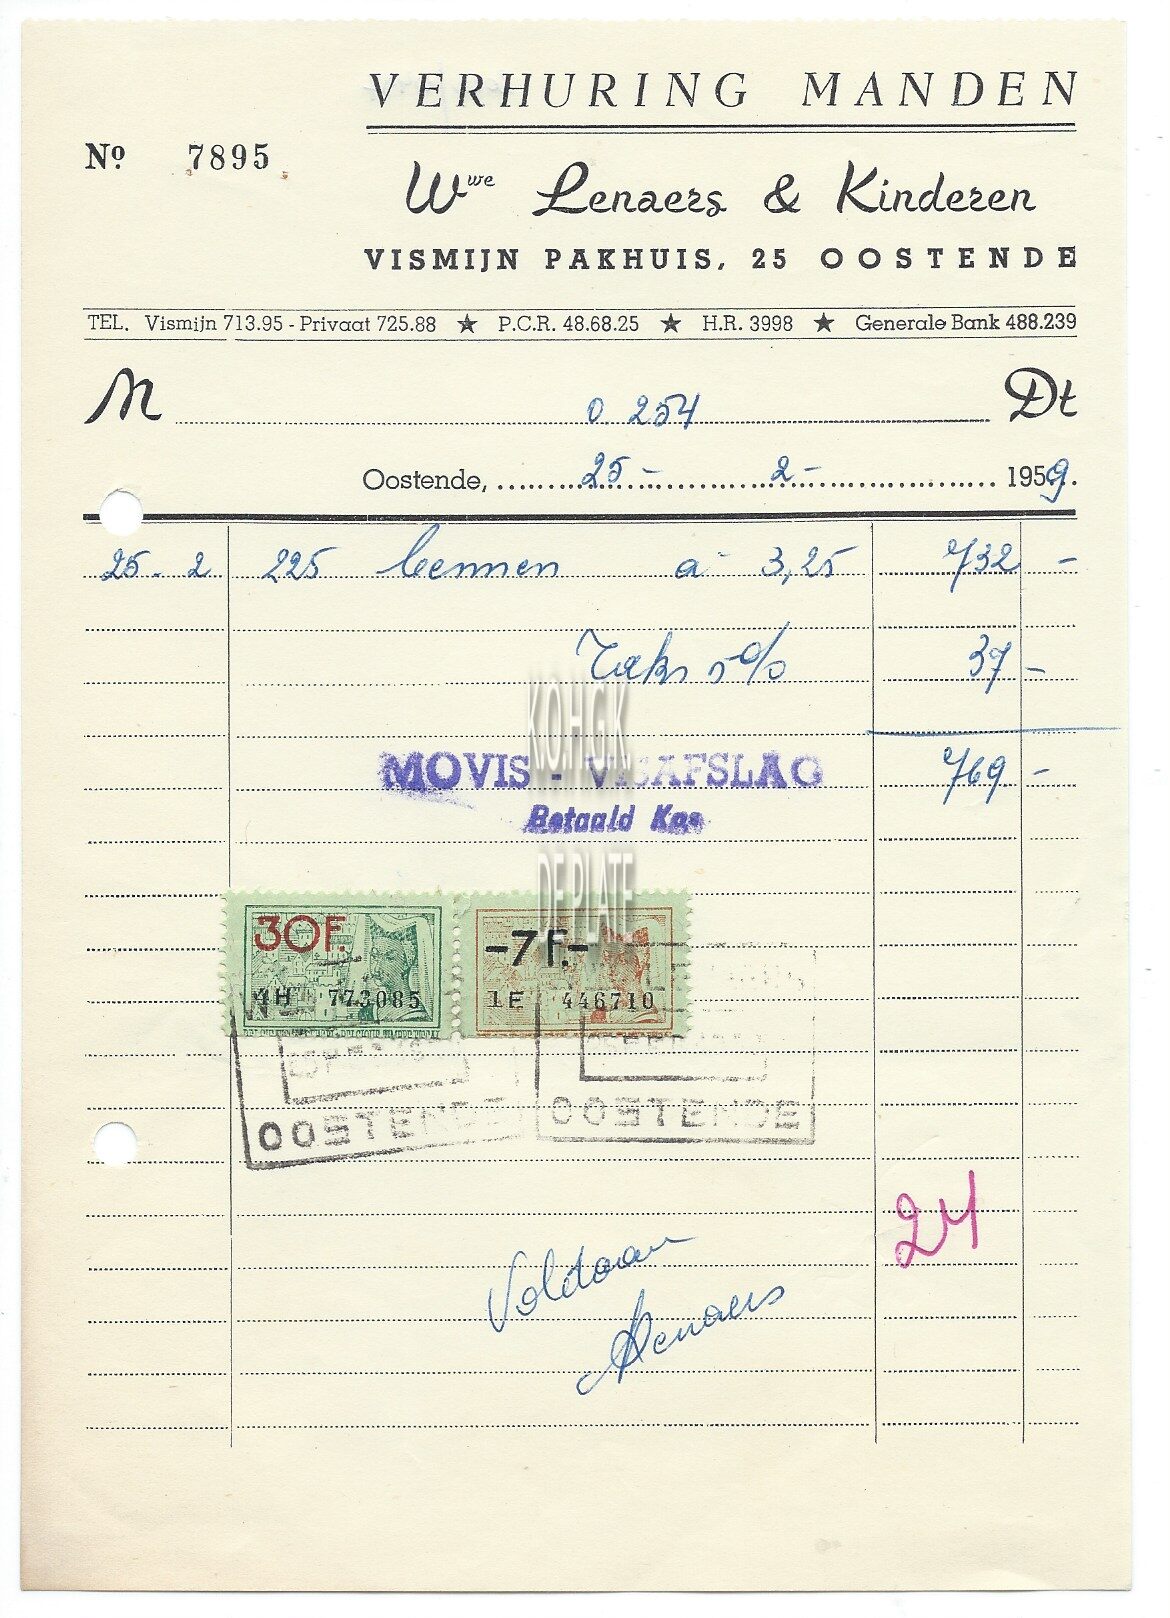 VERHURING MANDEN
Nº 7895
Wwe Lenaers & Kinderen
VISMIJN PAKHUIS, 25 OOSTENDE
TEL. Vismijn 713.95 - Privaat 725.88 ★ P.C.R. 48.68.25 ★ H.R. 3998 ★ Generale Bank 488.239
M O 254 Dt
Oostende, 25 - 2 - 1959.
25. 2 225 bennen à 3,25 732 -
Taks 5% 37 -
KO.H.G.K.
MOVIS - VISAFSLAG 769 -
Betaald Kas
DE PLATE
30F. -7 F.-
4H 773085 1E 446710
OOSTENDE OOSTENDE
24
Voldaan
Lenaers